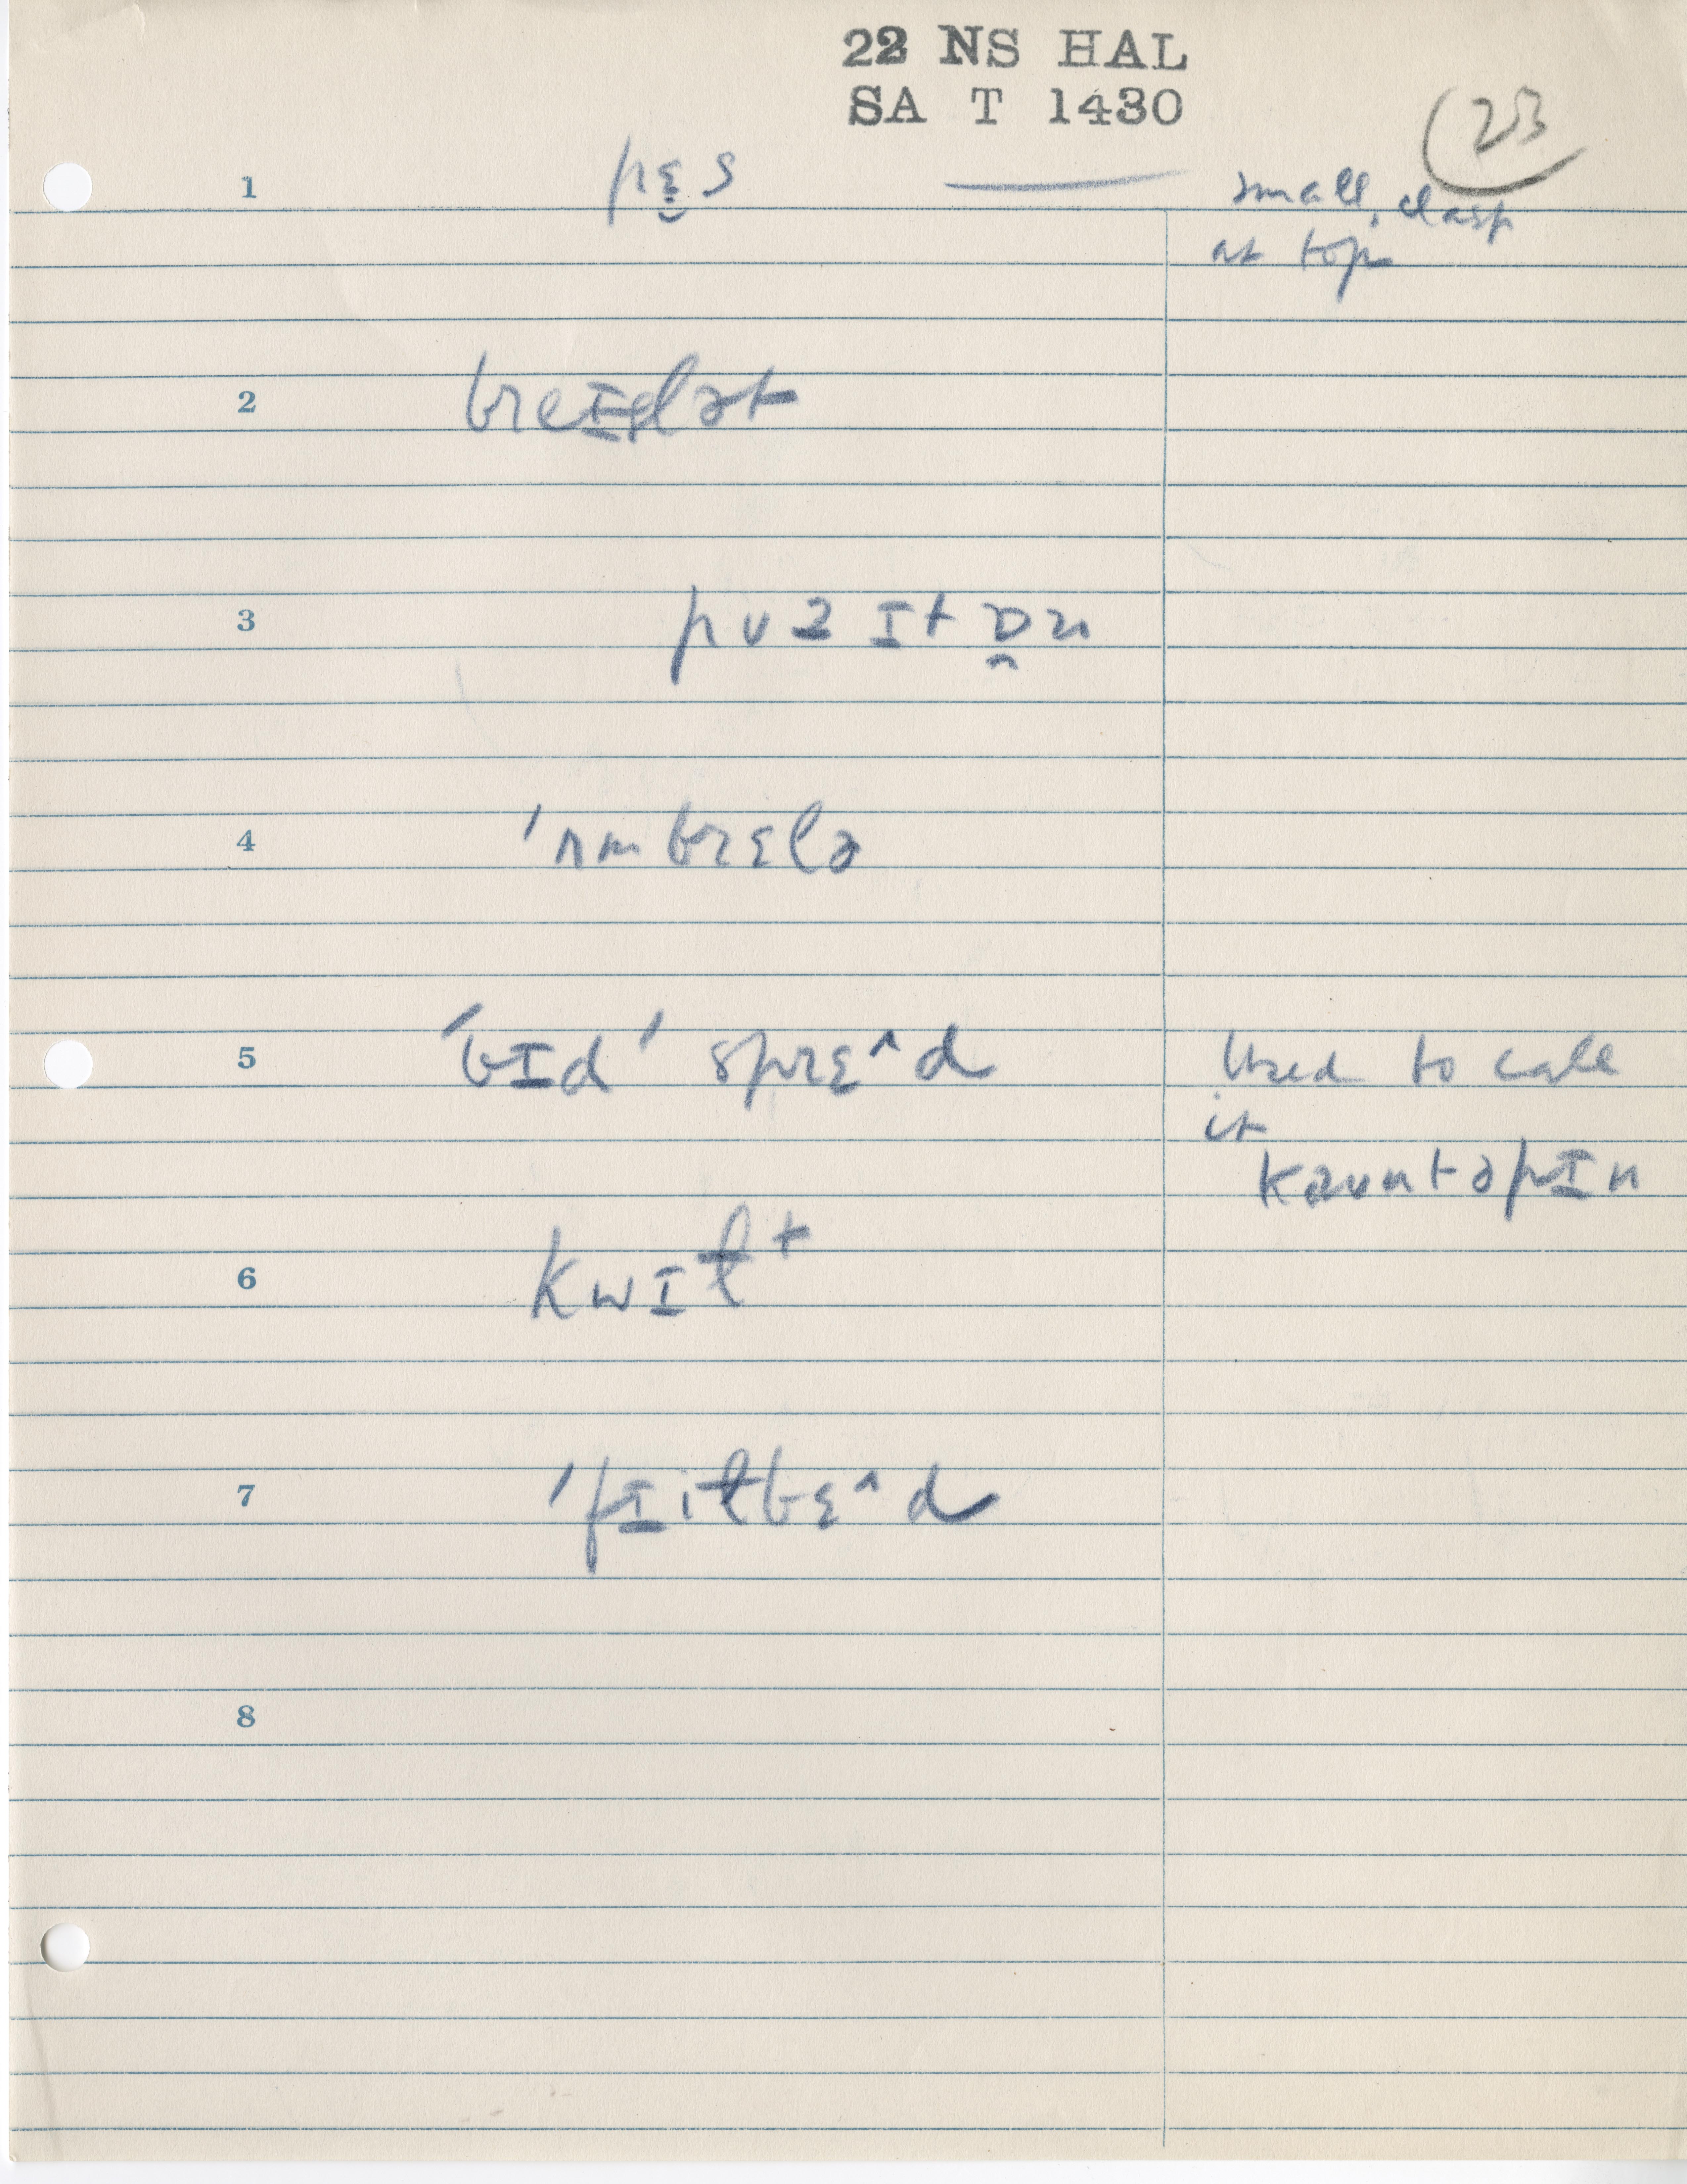 22 NS HAL
SA T 1430
(23
1 pɛ̮s small, clasp
at top
2 breɪslət
3 pʊɜ ɪt ɒ̭n
4 'ʌmbrɛlə
5 'bɪd' sprɛ^d Used to call
it
kaʊntəpɪn
6 kwɪɫt
7 'fɪiɫbɛ^d
8